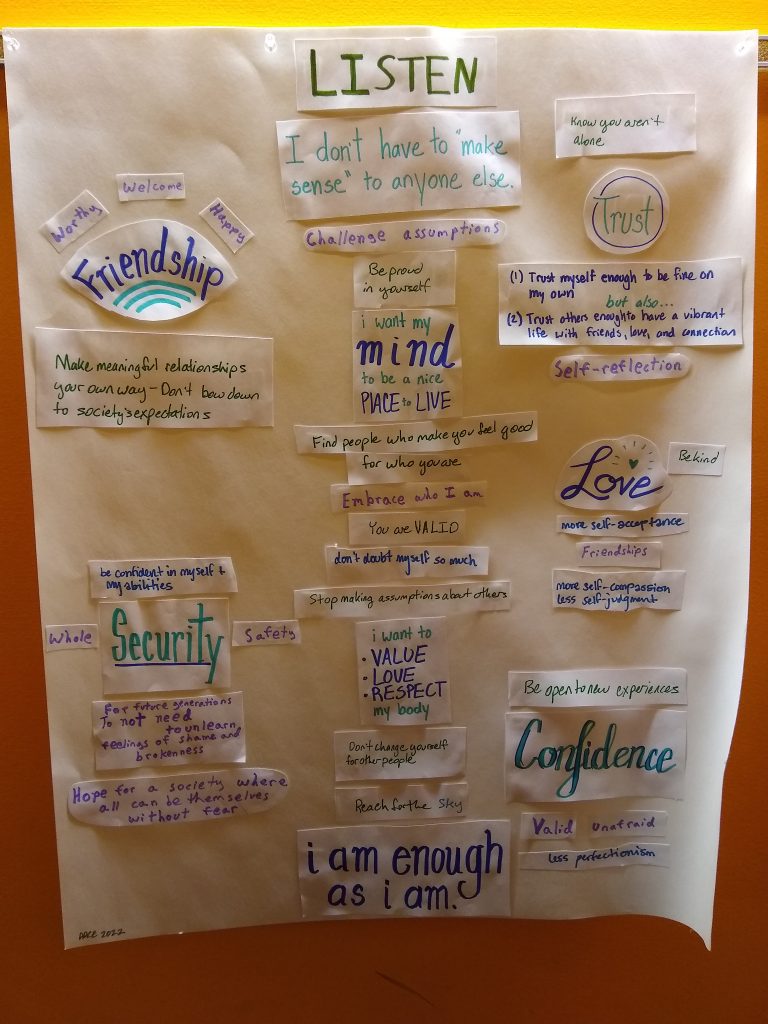 LISTEN
I don't have to "make
sense" to anyone else.
Challenge assumptions
Be proud
in yourself
i want my
mind
to be a nice
PLACE to LIVE
Find people who make you feel good
for who you are
Embrace who I am
You are VALID
don't doubt myself so much
Stop making assumptions about others
i want to
• VALUE
• LOVE
• RESPECT
my body
Don't change yourself
for other people
Reach for the Sky
i am enough
as i am.
Worthy
Welcome
Happy
Friendship
Make meaningful relationships
your own way - Don't bow down
to society's expectations
be confident in myself +
my abilities
Whole
Security
Safety
For future generations
To not need
to unlearn
feelings of shame and
brokenness
Hope for a society where
all can be themselves
without fear
Know you aren't
alone
Trust
(1) Trust myself enough to be fine on
my own
but also...
(2) Trust others enough to have a vibrant
life with friends, love, and connection
Self-reflection
Love
Be kind
more self-acceptance
Friendships
more self-compassion
less self-judgment
Be open to new experiences
Confidence
Valid unafraid
less perfectionism
2022